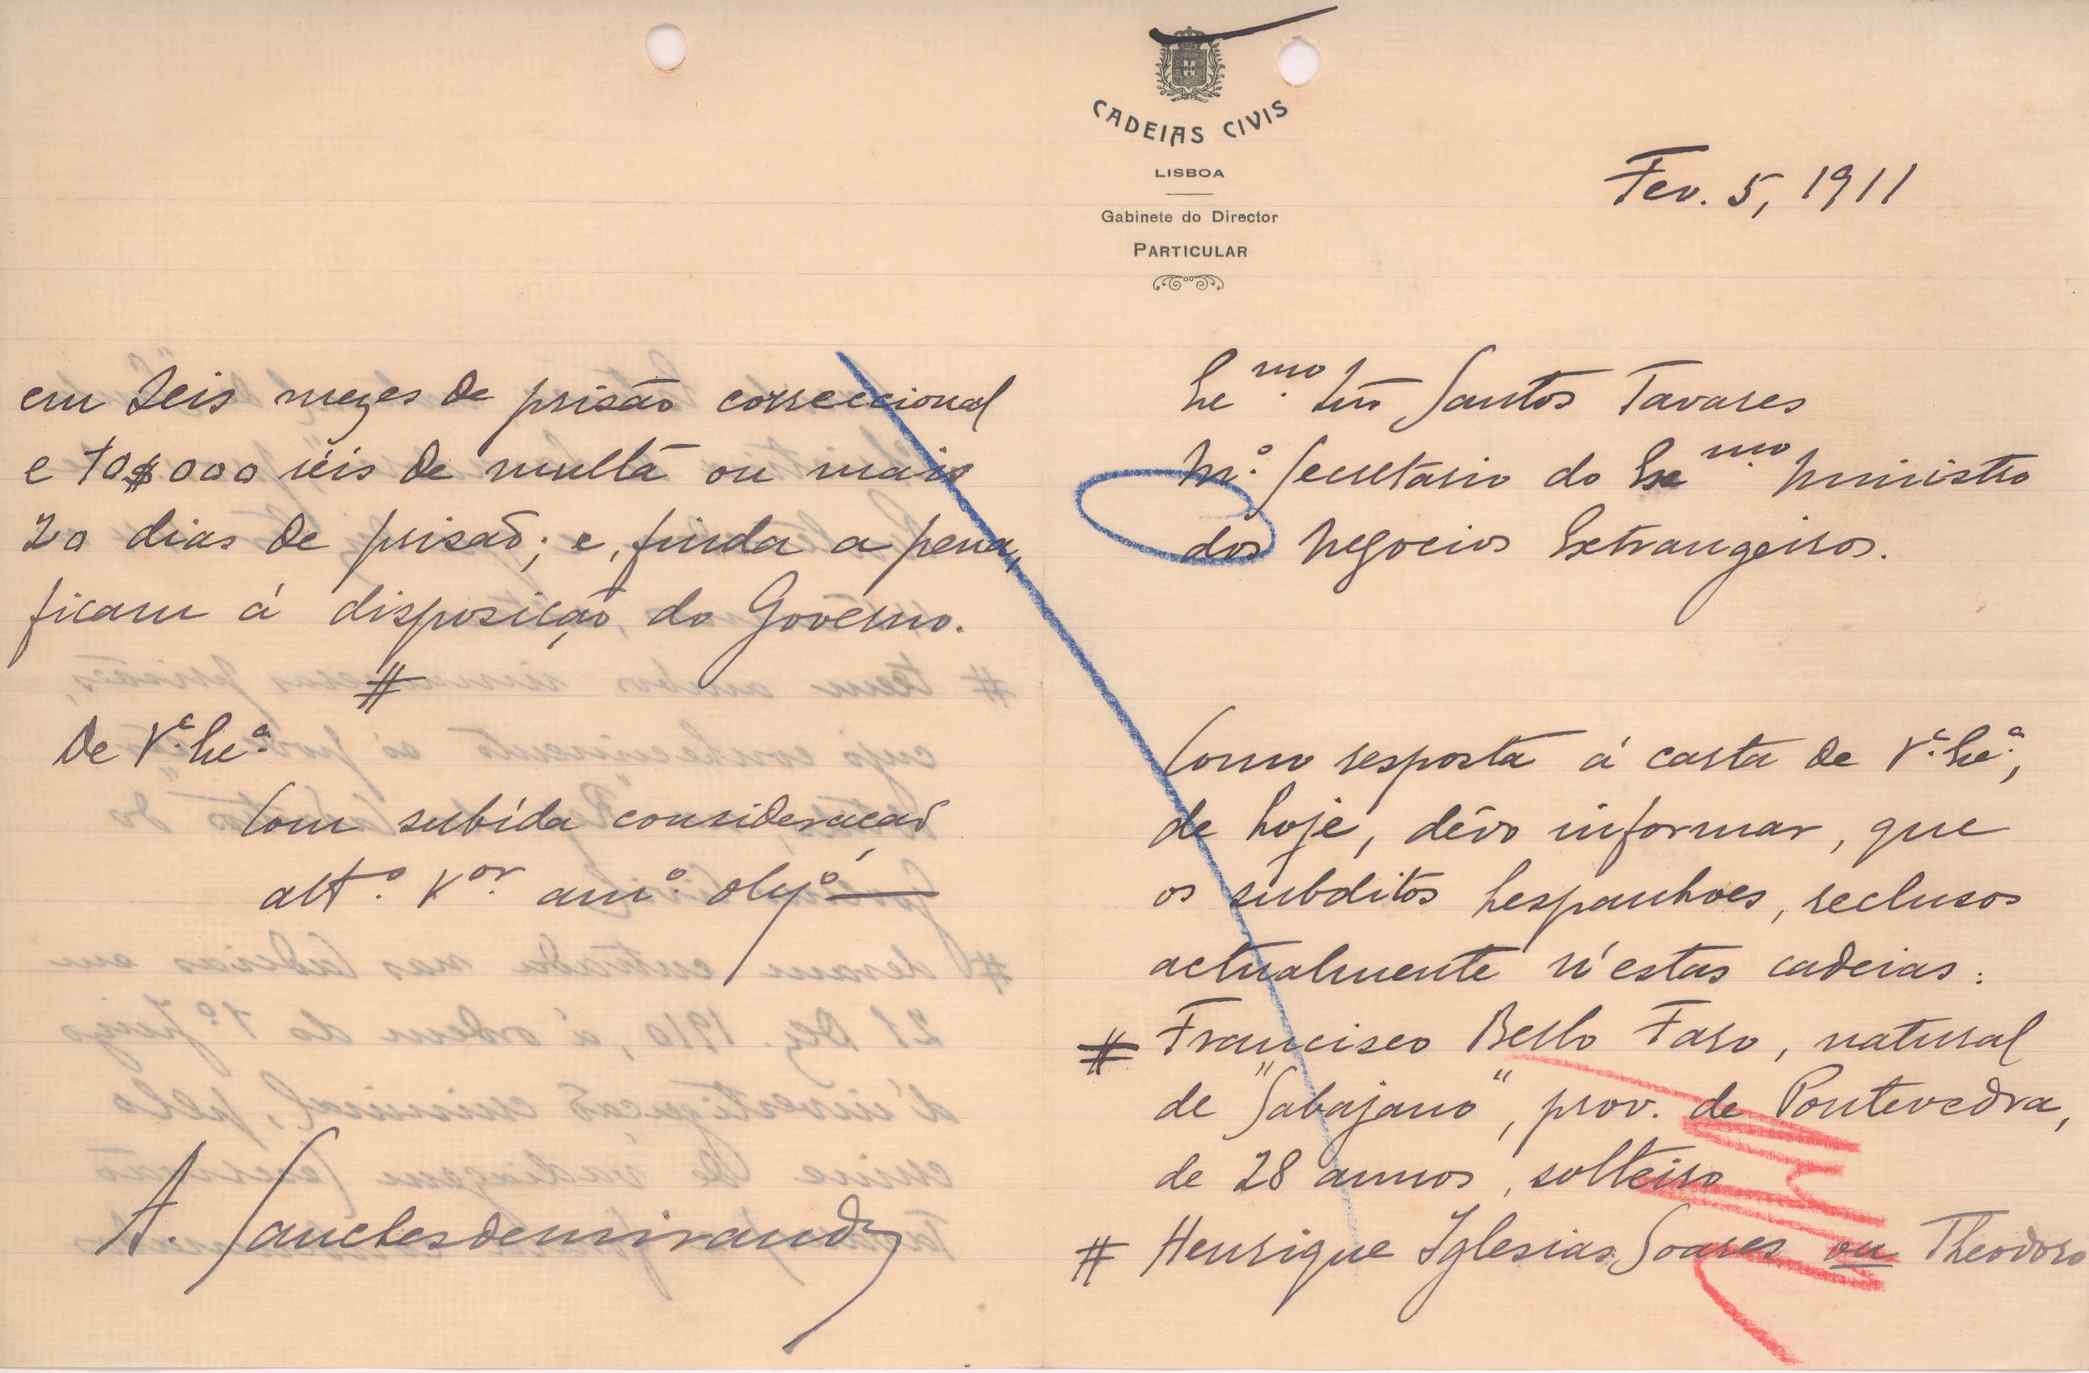 CADEIAS CIVIS
LISBOA
Gabinete do Director
PARTICULAR
Fev. 5, 1911
Exmo. Snr Santos Tavares
M.º Secretario do Exmo. Ministro
dos Negocios Extrangeiros.
Como resposta á carta de V.ª Exª,
de hoje, dévo informar, que
os súbditos hespanhoes, reclusos
actualmente n'estas cadeias:
# Francisco Bello Faro, natural
de "Sabajano", prov. de Pontevedra,
de 28 annos, solteiro
# Henrique Iglesias Soares ou Theodoro
em seis mezes de prisão correccional
e 10$000 réis de multa ou mais
20 dias de prisão; e, finda a pena,
ficam á disposição do Governo.
#
De V.ª Exª
Com subida consideração
attº. Vor. amº. obgº
A. Sanches de Miranda